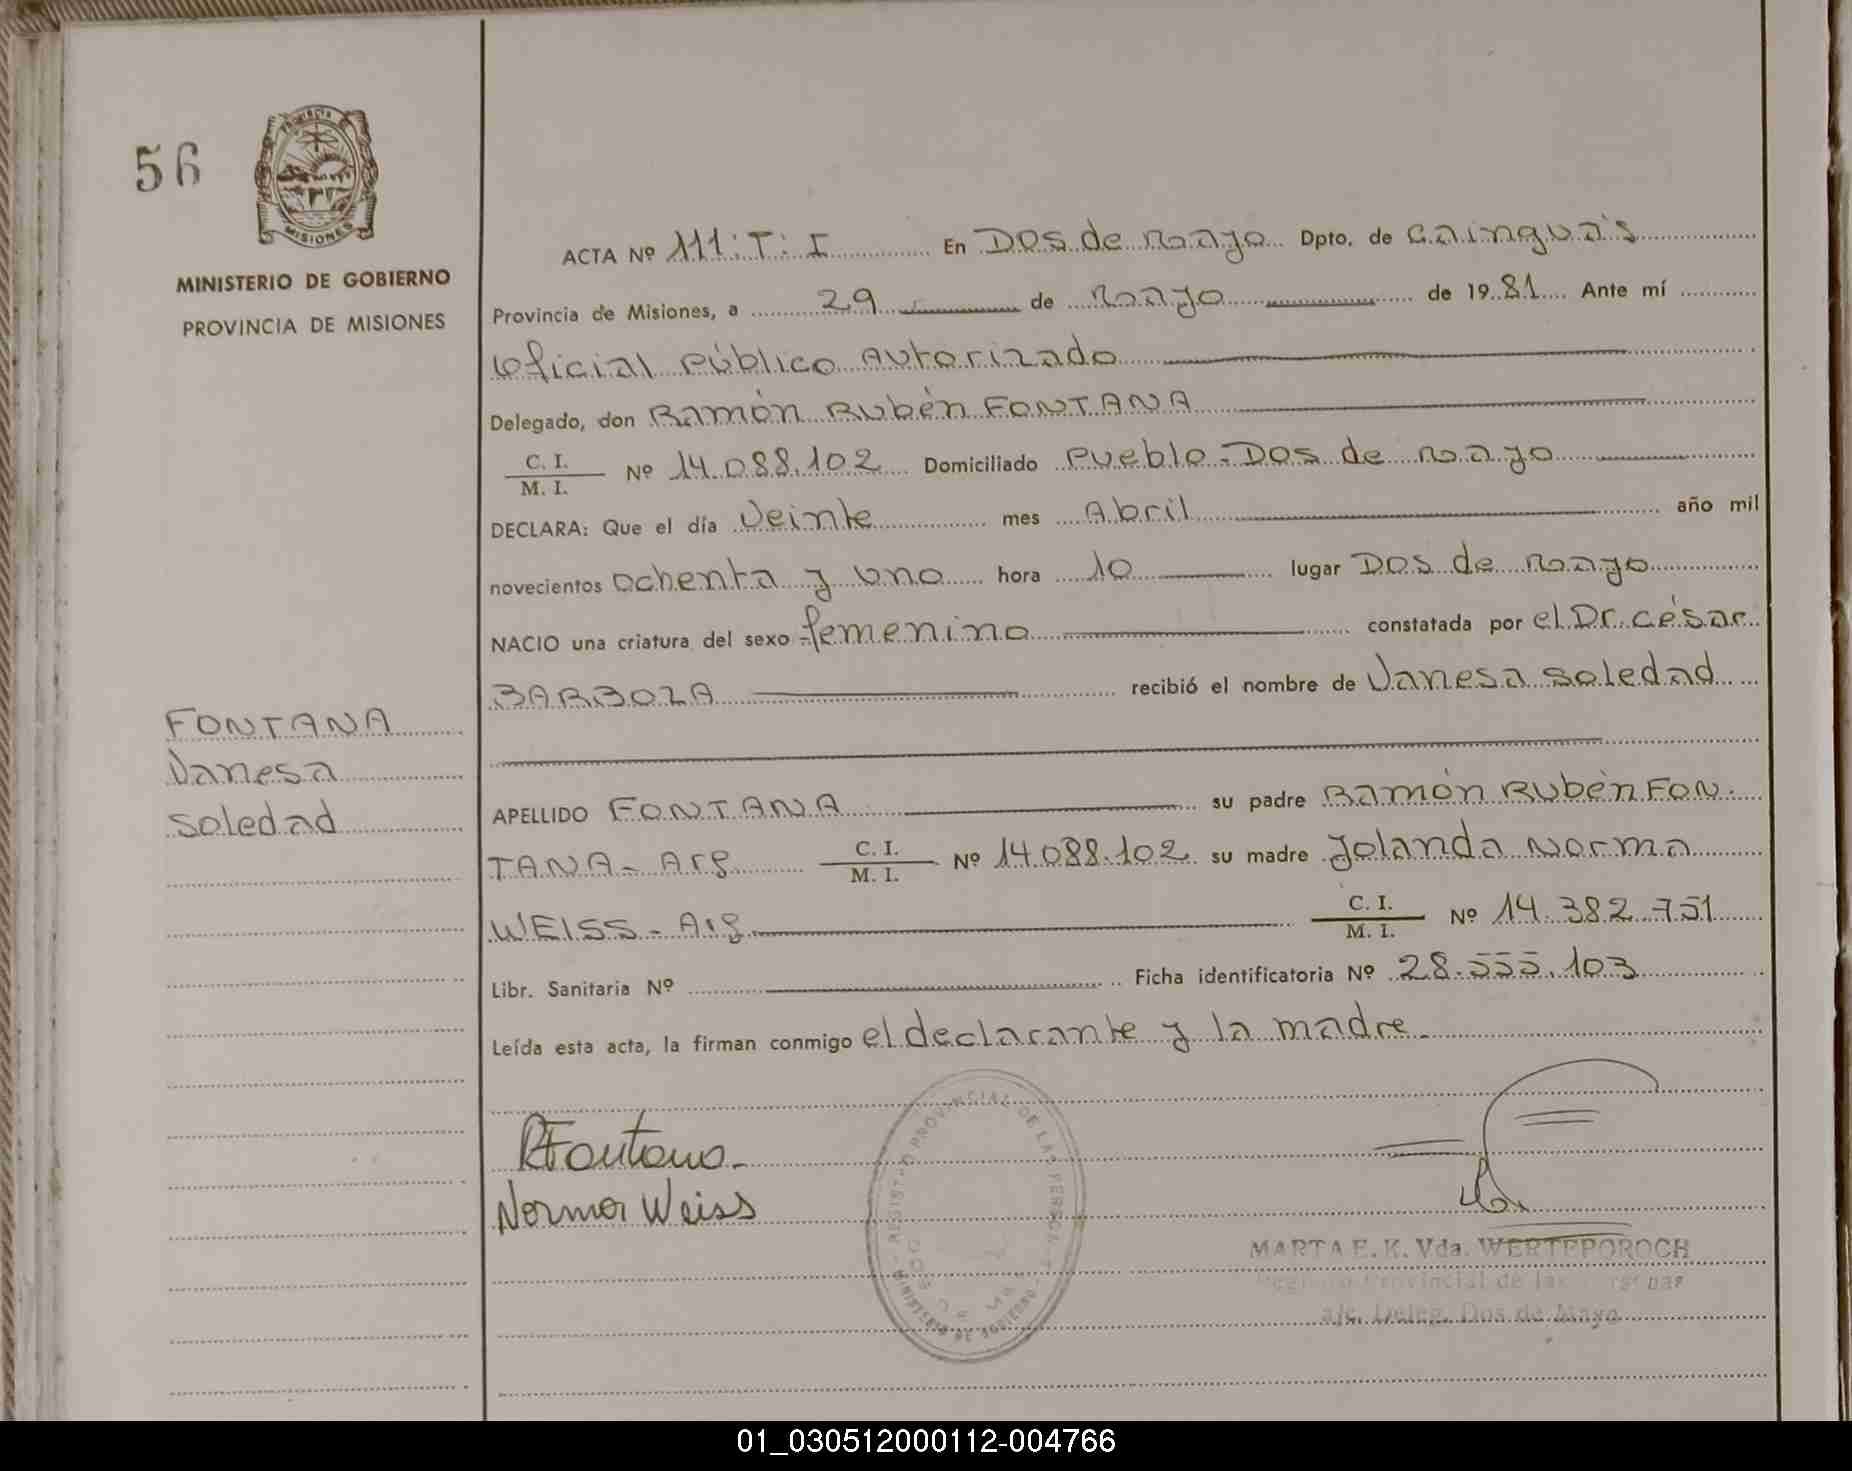 56
PROVINCIA DE
MISIONES
MINISTERIO DE GOBIERNO
PROVINCIA DE MISIONES
FONTANA
Vanesa
Soledad
ACTA Nº 111:T:I En Dos de Mayo Dpto. de Cainguás
Provincia de Misiones, a 29 de Mayo de 1981 Ante mí
Oficial Público Autorizado
Delegado, don Ramón Rubén FONTANA
C. I.
M. I. Nº 14.088.102 Domiciliado Pueblo-Dos de Mayo
DECLARA: Que el día Veinte mes Abril año mil
novecientos ochenta y uno hora 10 lugar Dos de Mayo
NACIO una criatura del sexo femenino constatada por el Dr. César
BARBOZA recibió el nombre de Vanesa Soledad
APELLIDO FONTANA su padre Ramón Rubén FON-
TANA - Arg C. I.
M. I. Nº 14.088.102 su madre Yolanda Norma
WEISS - Arg C. I.
M. I. Nº 14.382.751
Libr. Sanitaria Nº Ficha identificatoria Nº 28.555.103
Leída esta acta, la firman conmigo el declarante y la madre.
RFontana-
Norma Weiss
REGISTRO PROVINCIAL DE LAS PERSONAS
MINISTERIO DE GOBIERNO
MARTA E. K. Vda. WERTEPOROCH
Registro Provincial de las Personas
a/c. Deleg. Dos de Mayo
01_030512000112-004766